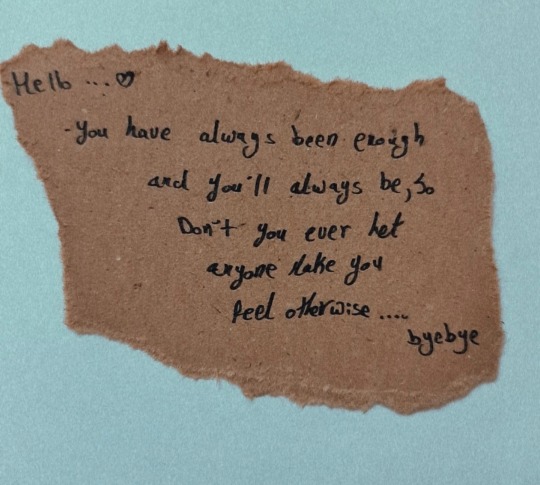 Hello ...♡
-You have always been enough
and you'll always be, so
Don't you ever let
anyone Make you
feel otherwise ....
byebye